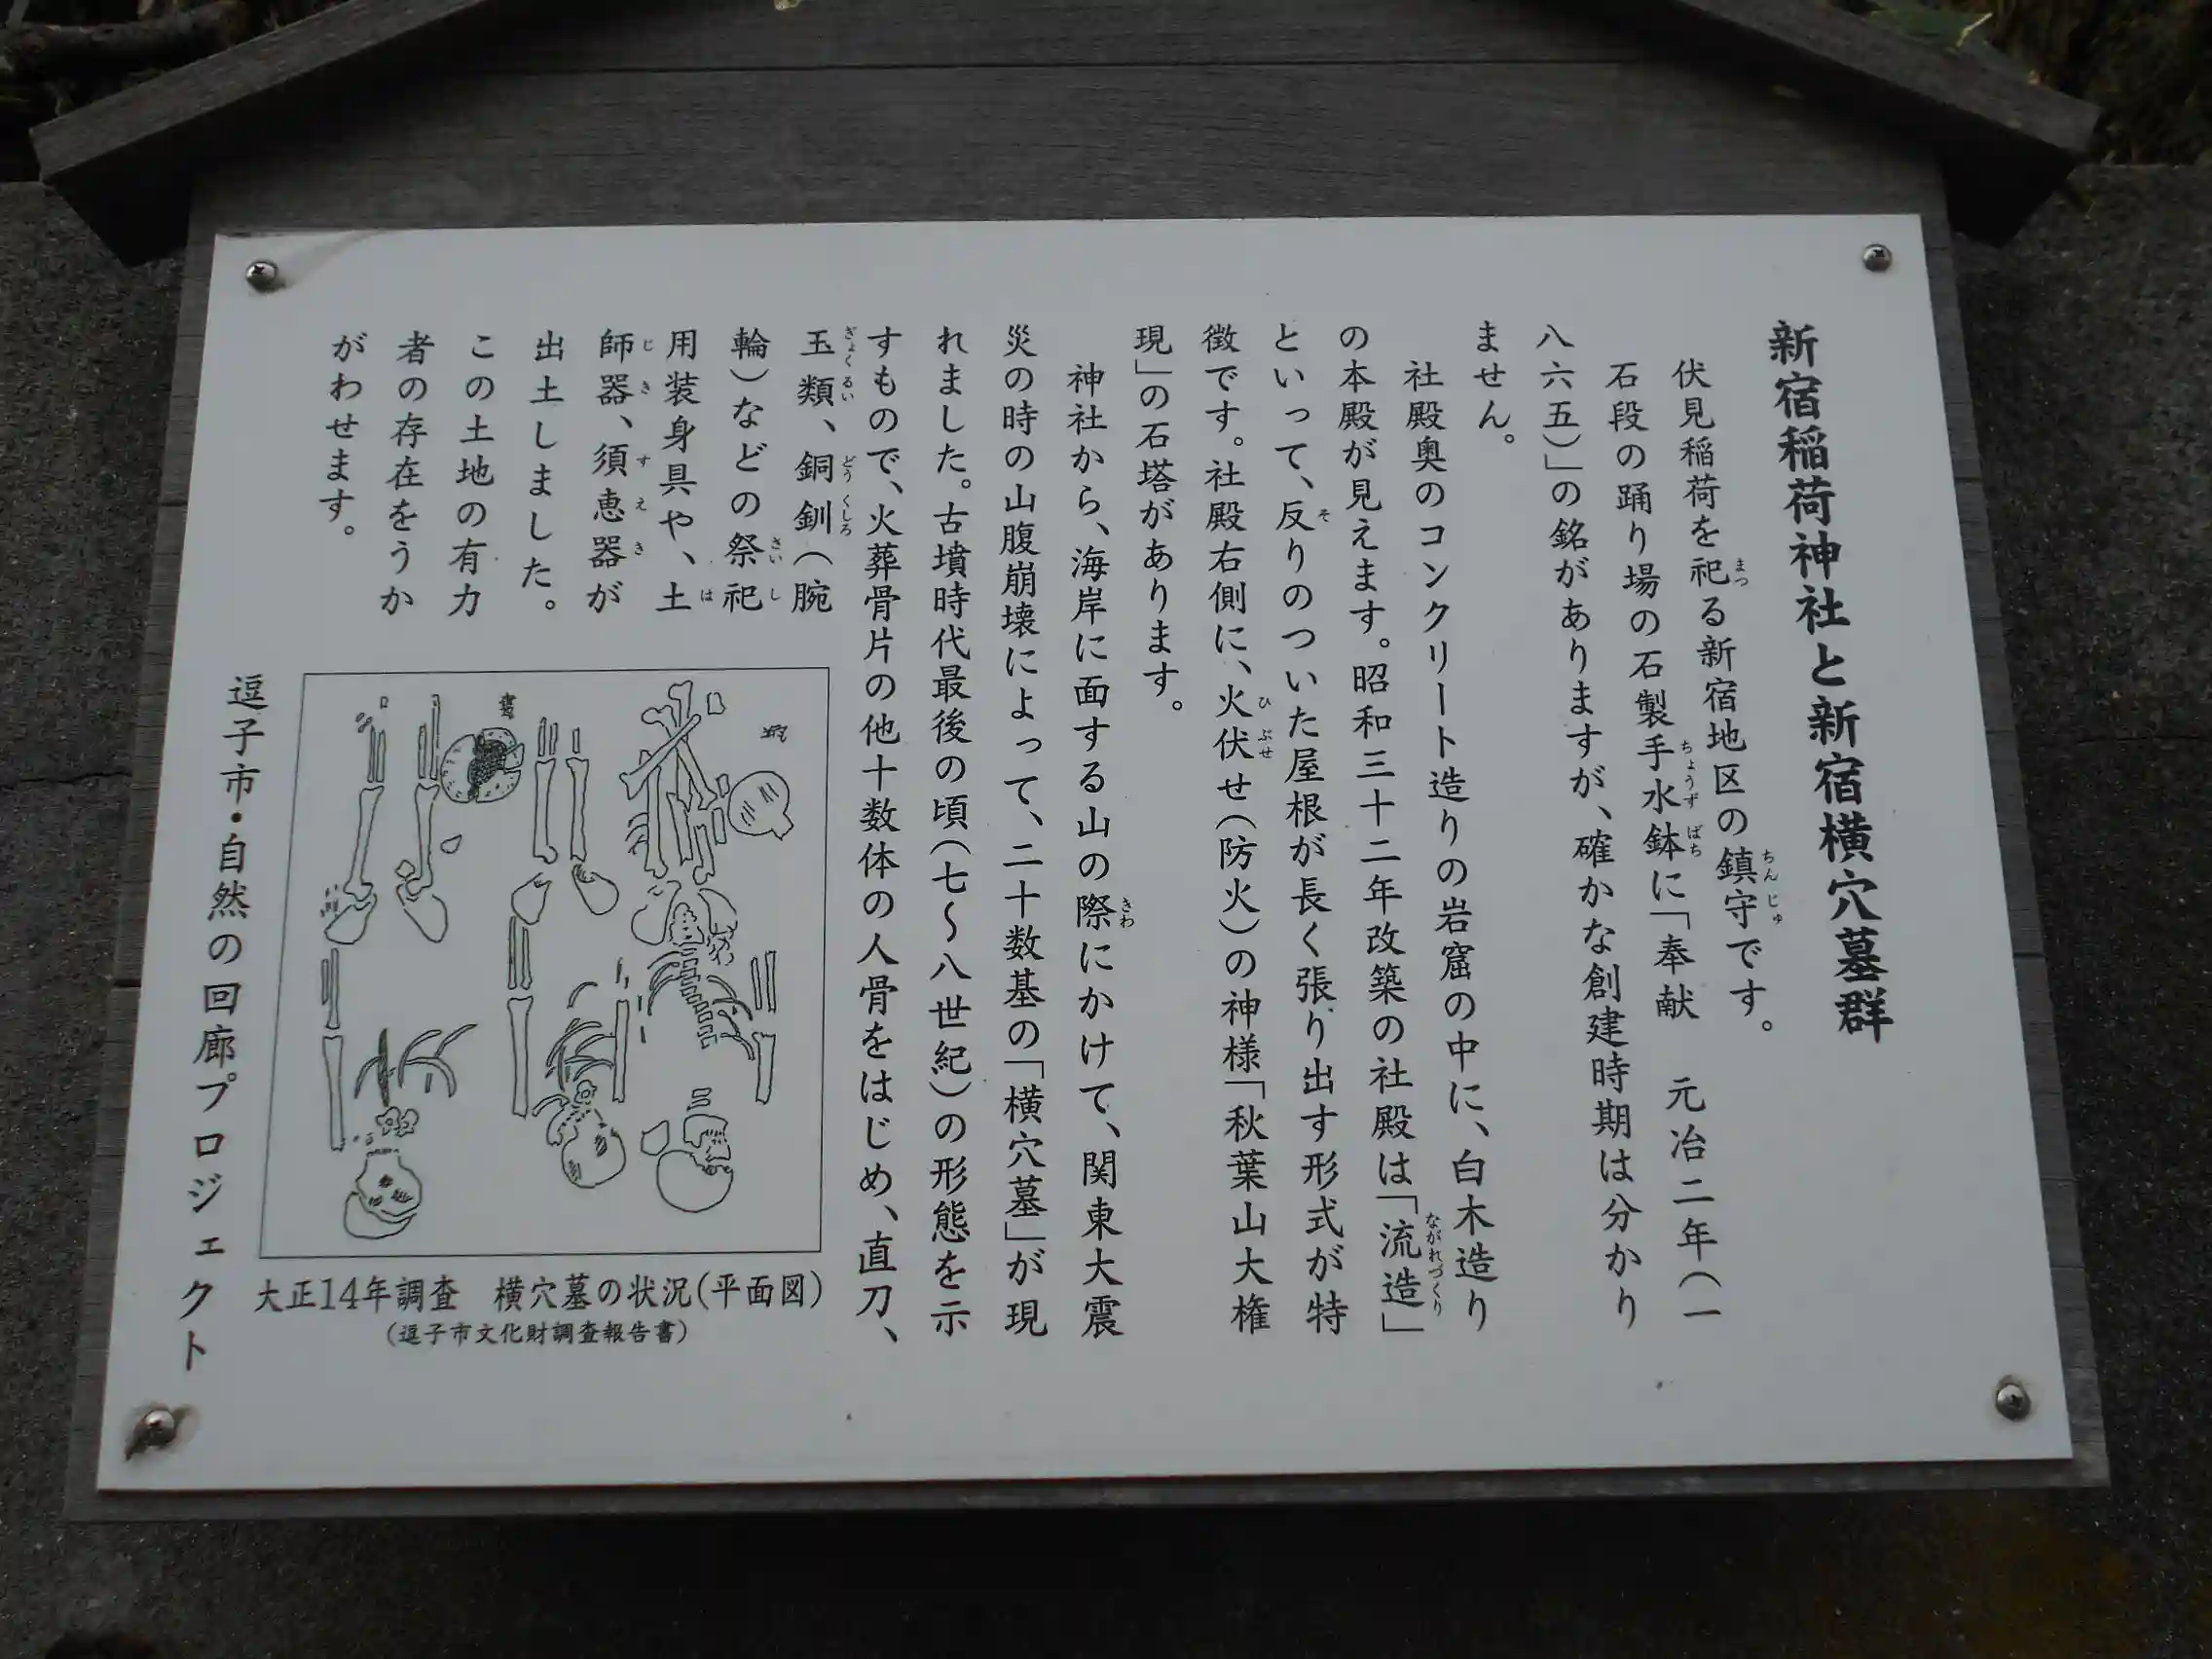 新宿稲荷神社と新宿横穴墓群
伏見稲荷を祀る新宿地区の鎮守です。
石段の踊り場の石製手水鉢に「奉献　元冶二年（一
八六五）」の銘がありますが、確かな創建時期は分かり
ません。
社殿奥のコンクリート造りの岩窟の中に、白木造り
の本殿が見えます。昭和三十二年改築の社殿は「流造」
といって、反りのついた屋根が長く張り出す形式が特
徴です。社殿右側に、火伏せ（防火）の神様「秋葉山大権
現」の石塔があります。
神社から、海岸に面する山の際にかけて、関東大震
災の時の山腹崩壊によって、二十数基の「横穴墓」が現
れました。古墳時代最後の頃（七～八世紀）の形態を示
すもので、火葬骨片の他十数体の人骨をはじめ、直刀、
玉類、銅釧（腕
輪）などの祭祀
用装身具や、土
師器、須恵器が
出土しました。
この土地の有力
者の存在をうか
がわせます。
大正14年調査　横穴墓の状況（平面図）
（逗子市文化財調査報告書）
逗子市・自然の回廊プロジェクト